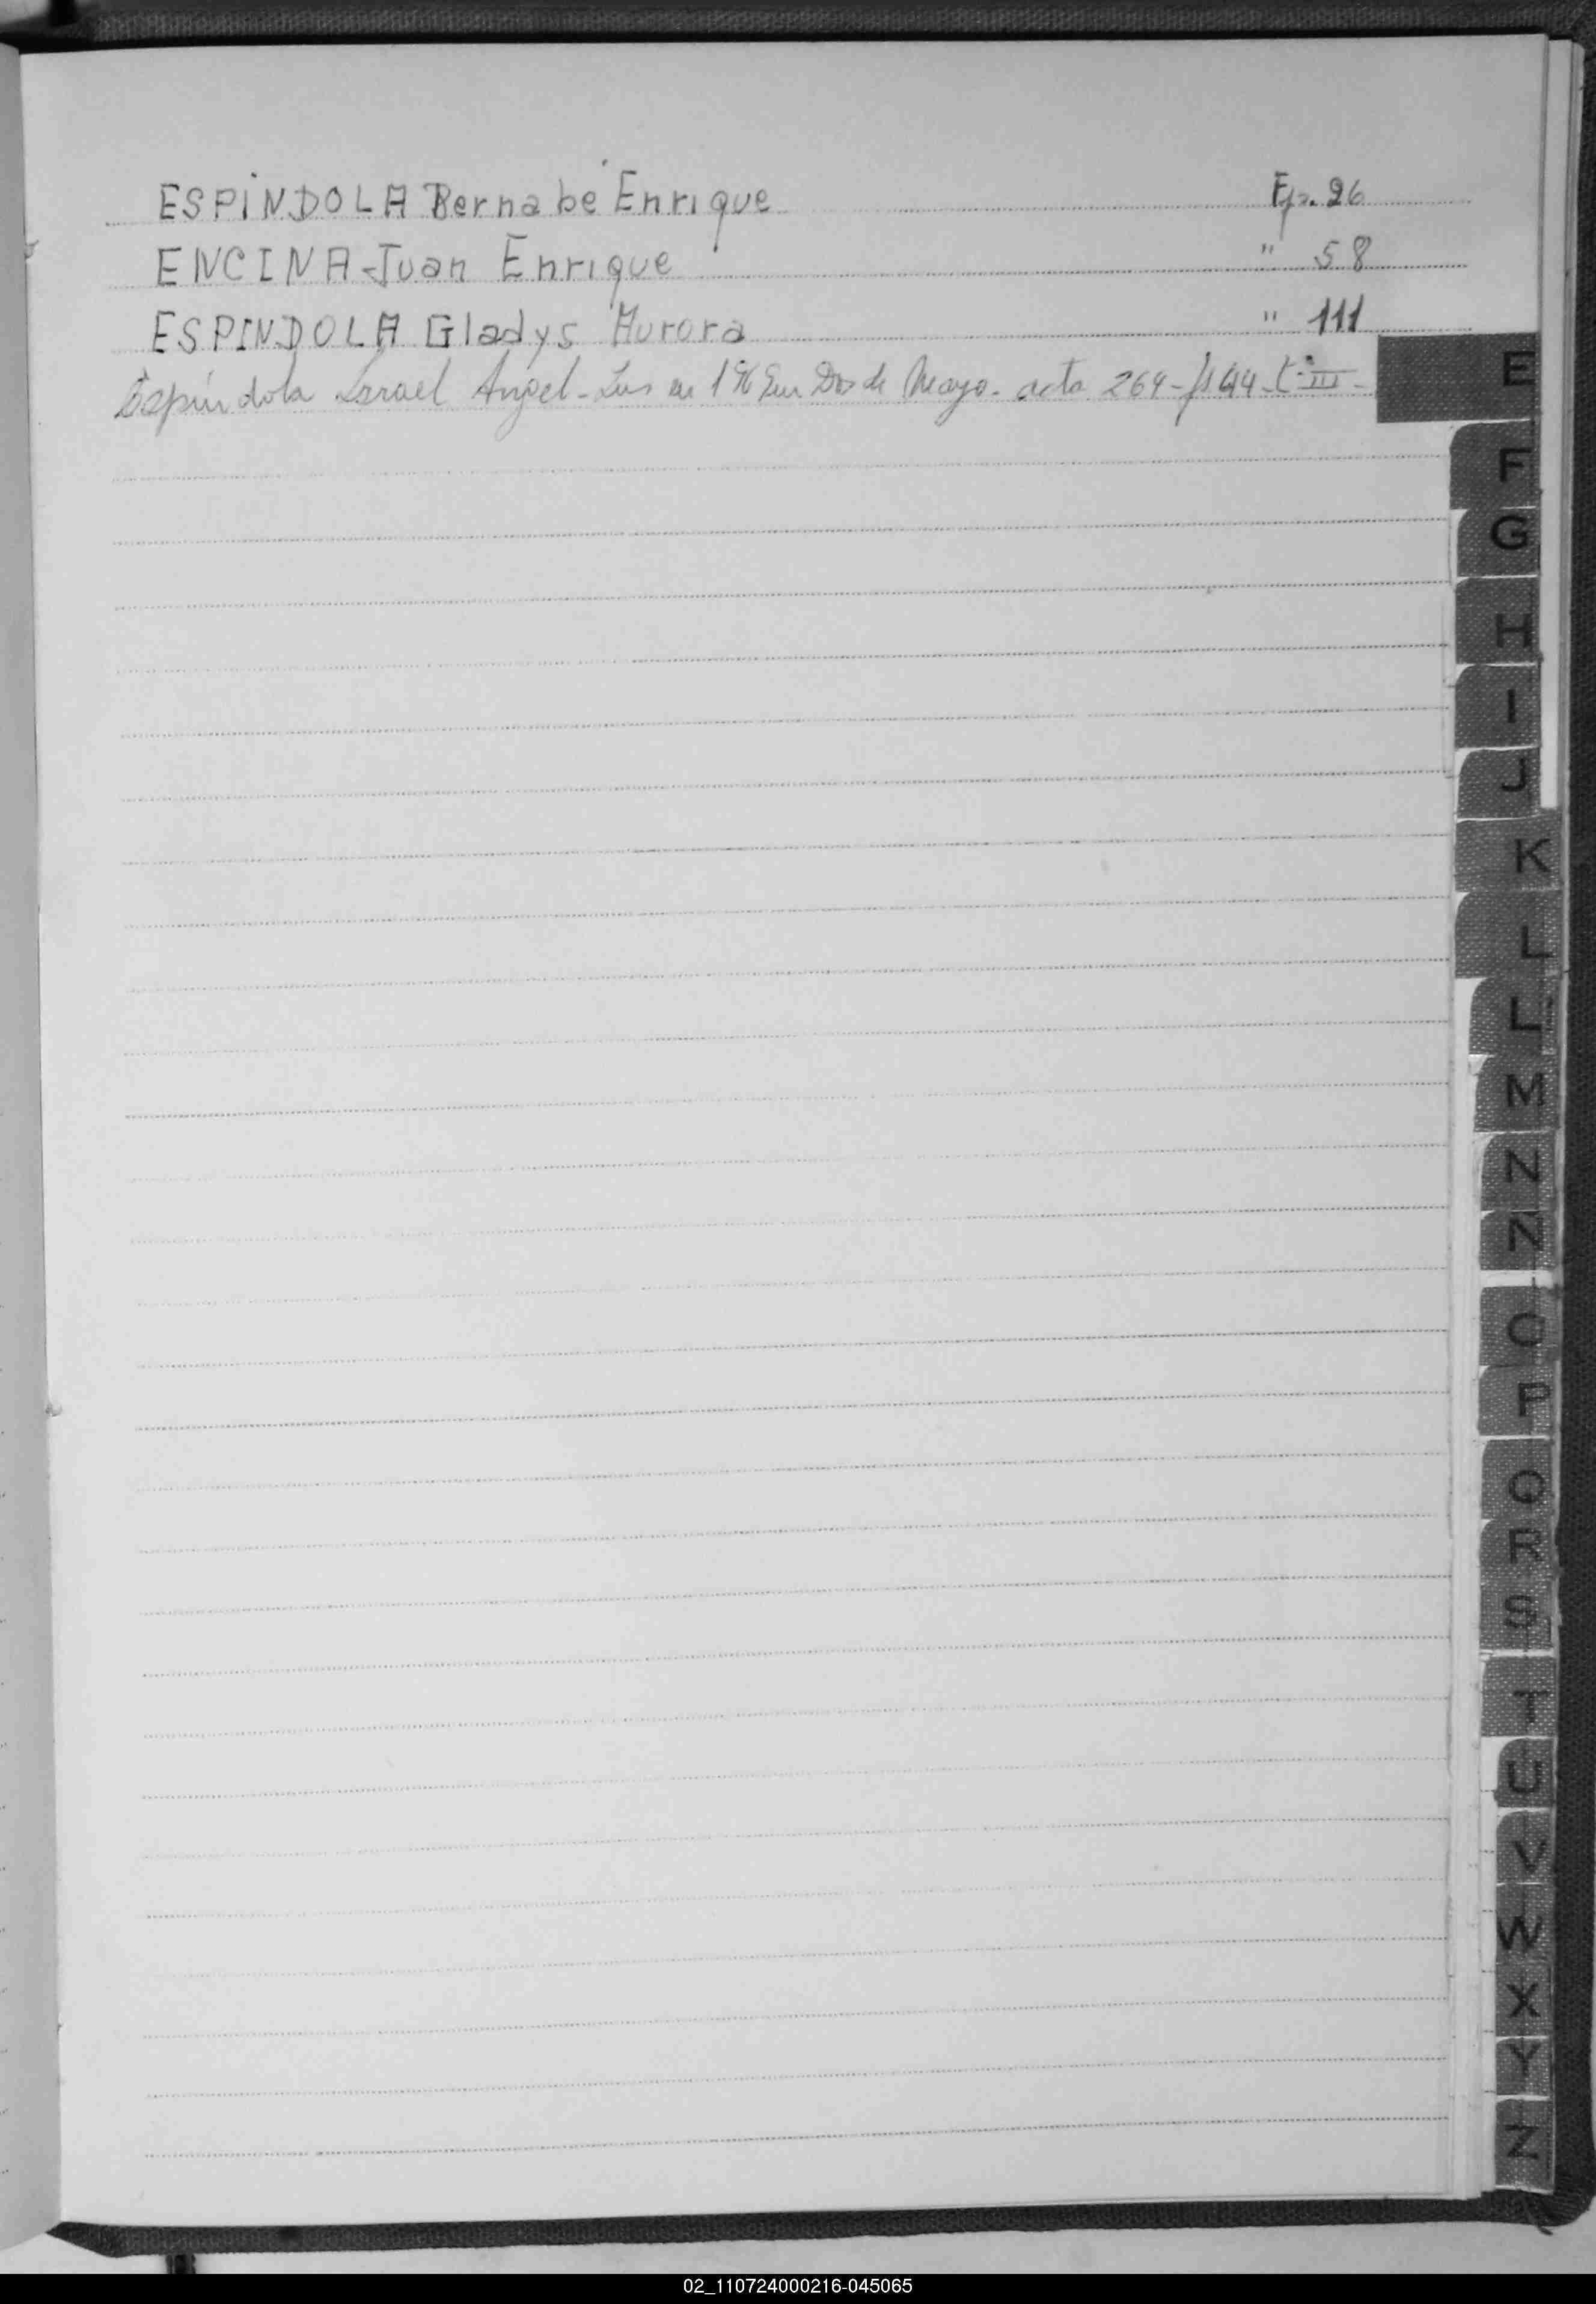 ESPINDOLA Bernabe Enrique Fjs. 26
ENCINA Juan Enrique " 58
ESPINDOLA Gladys Aurora " 111
Espíndola Israel Angel - en Dos de Mayo - acta 264 - fs 44 - t: III -
E
F
G
H
I
J
K
L
L
M
N
N
O
P
Q
R
S
T
U
V
W
X
Y
Z
02_110724000216-045065